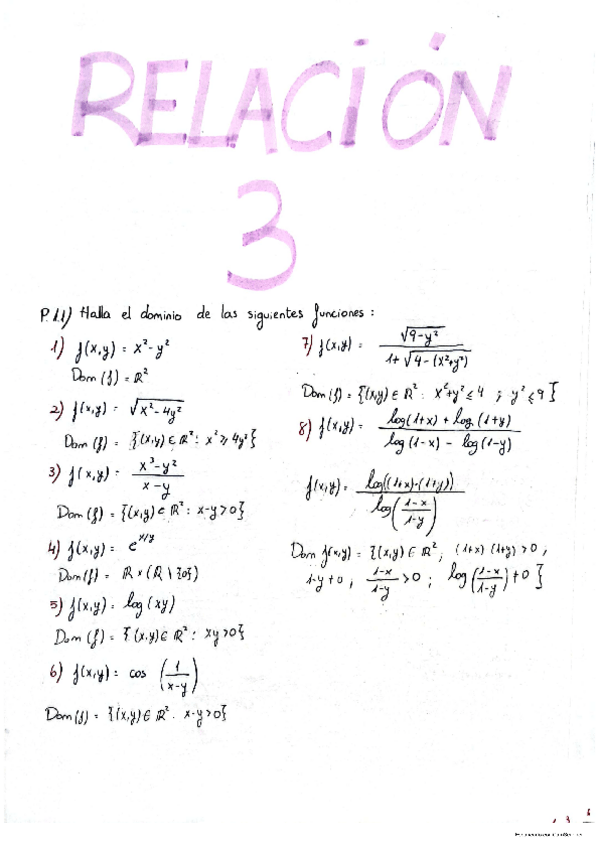 RELACIÓN
3
P.1.1) Halla el dominio de las siguientes funciones:
1) f(x,y) = x²-y²
Dom (f) = ℝ²
2) f(x,y) = √(x²-4y²)
Dom (f) = {(x,y) ∈ ℝ² : x² ≥ 4y²}
3) f(x,y) = (x³-y²)/(x-y)
Dom (f) = {(x,y) ∈ ℝ² : x-y>0}
4) f(x,y) = e^(x/y)
Dom (f) = ℝ × (ℝ \ {0})
5) f(x,y) = log (xy)
Dom (f) = {(x,y) ∈ ℝ² : xy>0}
6) f(x,y) = cos (1/(x-y))
Dom (f) = {(x,y) ∈ ℝ² : x-y>0}
7) f(x,y) = √(9-y²)/(1+√(4-(x²+y²)))
Dom (f) = {(x,y) ∈ ℝ² : x²+y² ≤ 4 ; y² ≤ 9}
8) f(x,y) = (log(1+x) + log (1+y))/(log (1-x) - log (1-y))
f(x,y) = log((1+x)·(1+y))/log((1-x)/(1-y))
Dom f(x,y) = {(x,y) ∈ ℝ² ; (1+x) (1+y) >0 ,
1-y ≠ 0 , (1-x)/(1-y) >0 ; log((1-x)/(1-y)) ≠ 0}